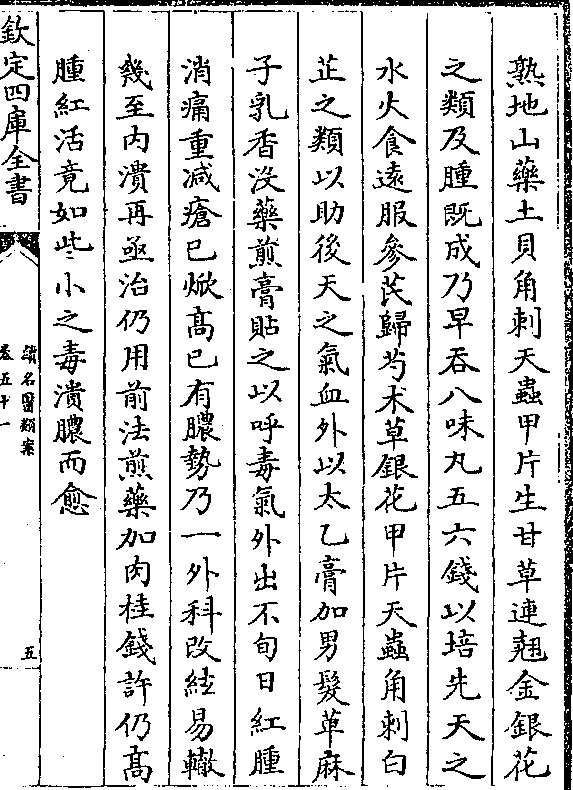 熟地山藥土貝角刺天蟲甲片生甘草連翹金銀花
之類及腫既成乃早吞八味丸五六錢以培先天之
水火食遠服參芪歸芍术草銀花甲片天蟲角刺白
芷之類以助後天之氣血外以太乙膏加男髮萆麻
子乳香沒藥煎膏貼之以呼毒氣外出不旬日紅腫
消痛重減瘡已焮高已有膿勢乃一外科改絃易轍
幾至内潰再亟治仍用前法煎藥加肉桂錢許仍高
腫紅活竟如些小之毒潰膿而愈
欽定四庫全書
續名醫類案
卷五十一
五